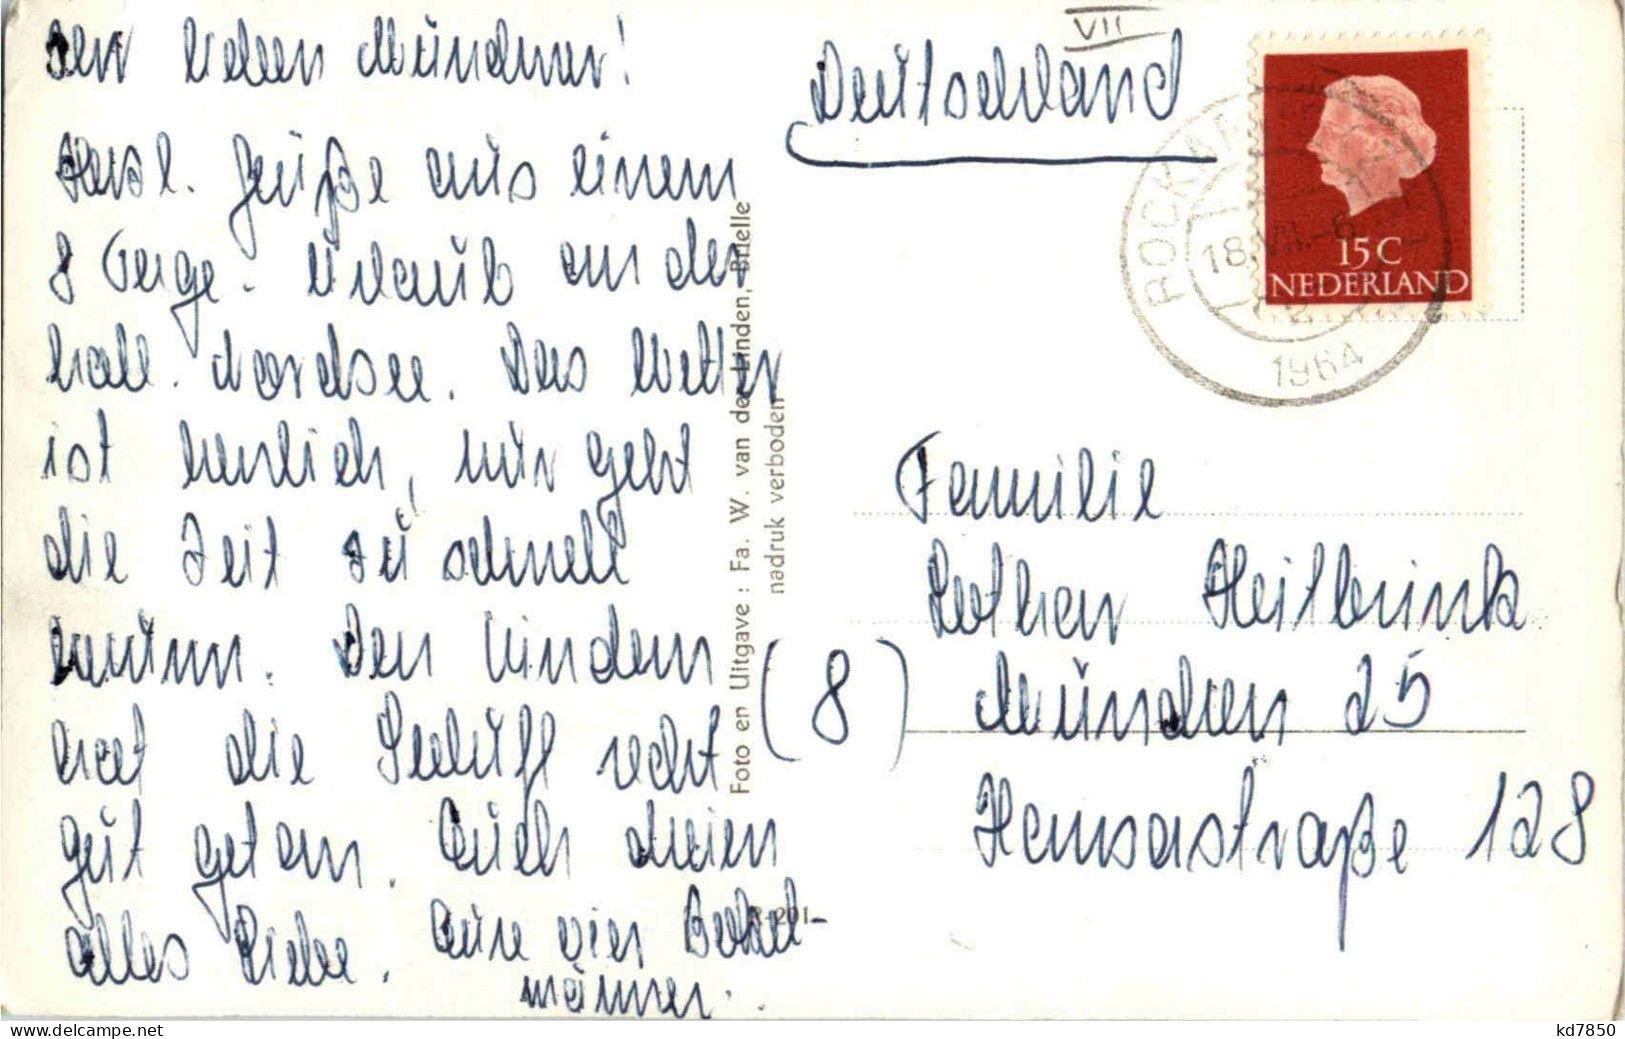 Ihr lieben Münchner!
Herzl. Grüße aus einem
8 Tage - Urlaub an der
holl. Nordsee. Das Wetter
ist herrlich, nur geht
die Zeit zu schnell
herum. Den Kindern
hat die Seeluft recht
gut getan. Euch dreien
alles Liebe. Eure vier
männer.
VII
Deutschland
15 C
NEDERLAND
18.VII.-6
1964
Familie
Lothar Heitbrink
(8) München 25
Hansastraße 128
Foto en Uitgave : Fa. W. van der Linden, Brielle
nadruk verboden
kd7850